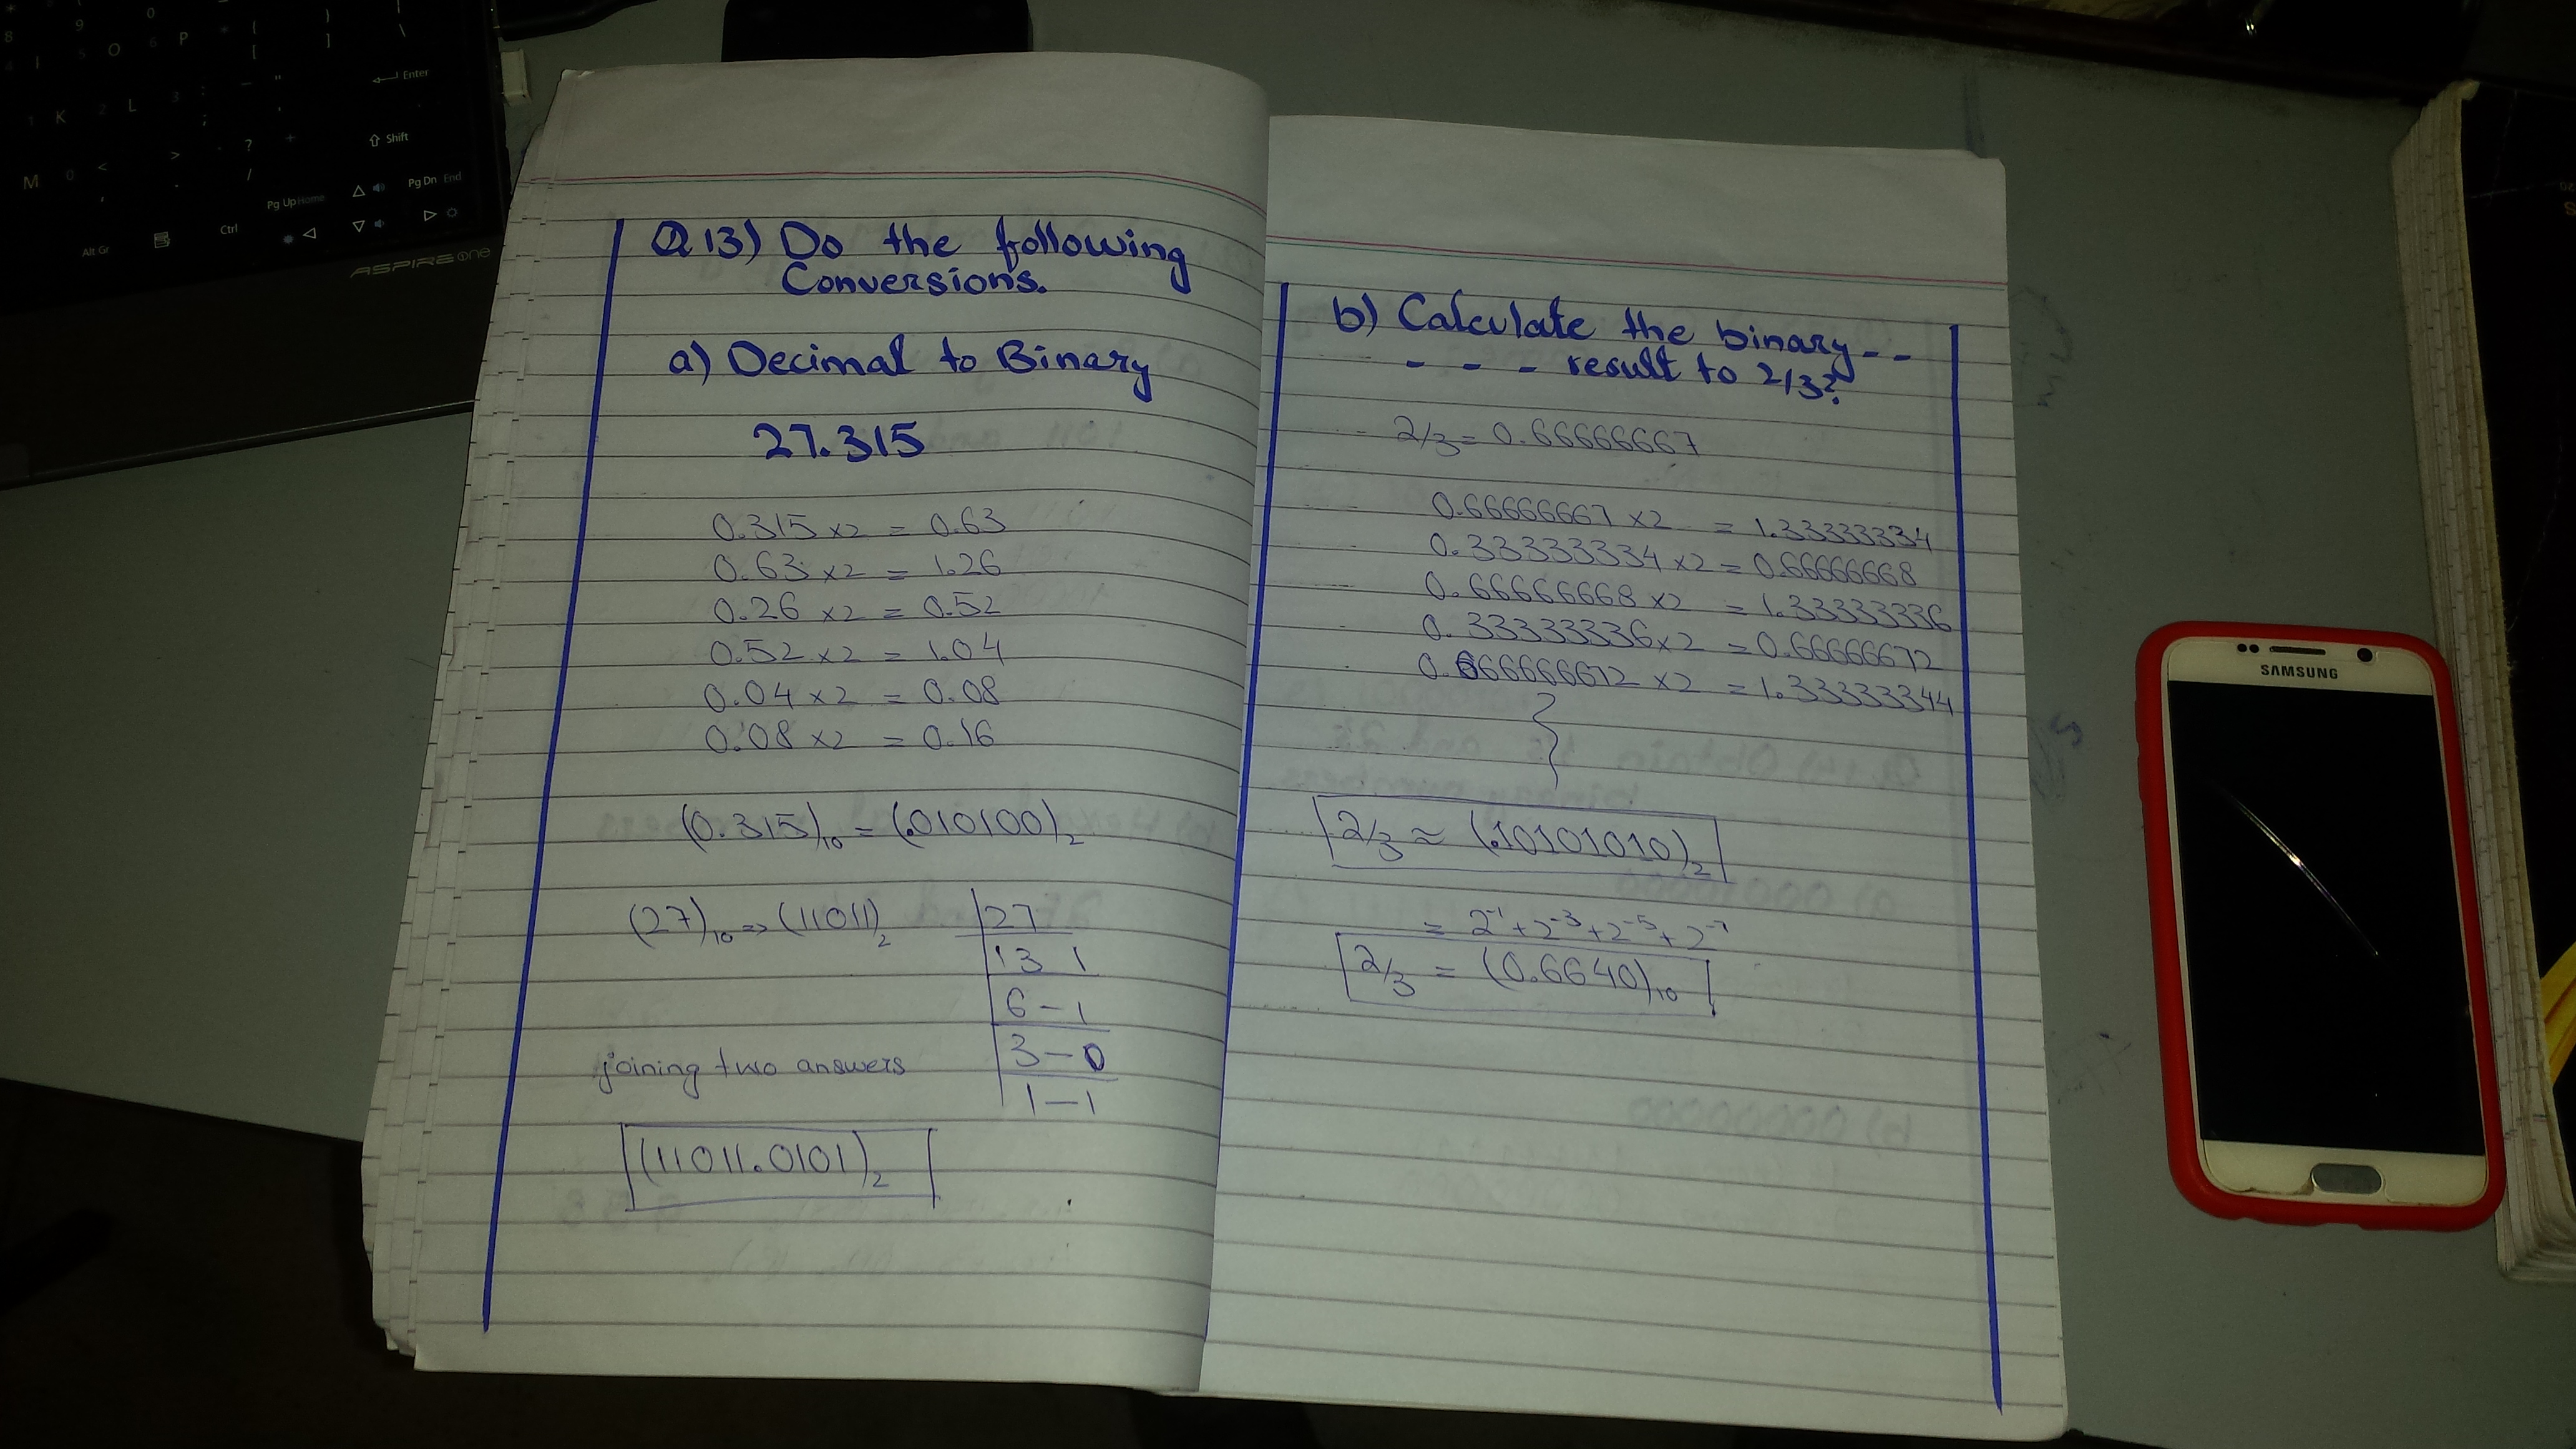 Q.13) Do the following
Conversions.
a) Decimal to Binary
27.315
0.315 x2 = 0.63
0.63 x2 = 1.26
0.26 x2 = 0.52
0.52 x2 = 1.04
0.04 x2 = 0.08
0.08 x2 = 0.16
(0.315)₁₀ = (.010100)₂
(27)₁₀ => (11011)₂
27
13 1
6 - 1
3 - 0
1 - 1
joining two answers
(11011.0101)₂
b) Calculate the binary - -
- - - - result to 2/3?
2/3 = 0.66666667
0.66666667 x2 = 1.33333334
0.33333334 x2 = 0.66666668
0.66666668 x2 = 1.33333336
0.33333336 x2 = 0.66666672
0.66666672 x2 = 1.33333344
2/3 ≈ (.10101010)₂
= 2⁻¹ + 2⁻³ + 2⁻⁵ + 2⁻⁷
2/3 = (0.6640)₁₀
SAMSUNG
ASPIRE one
Enter
Shift
Pg Up Home
Pg Dn End
Ctrl
Alt Gr
M
K
L
O
P